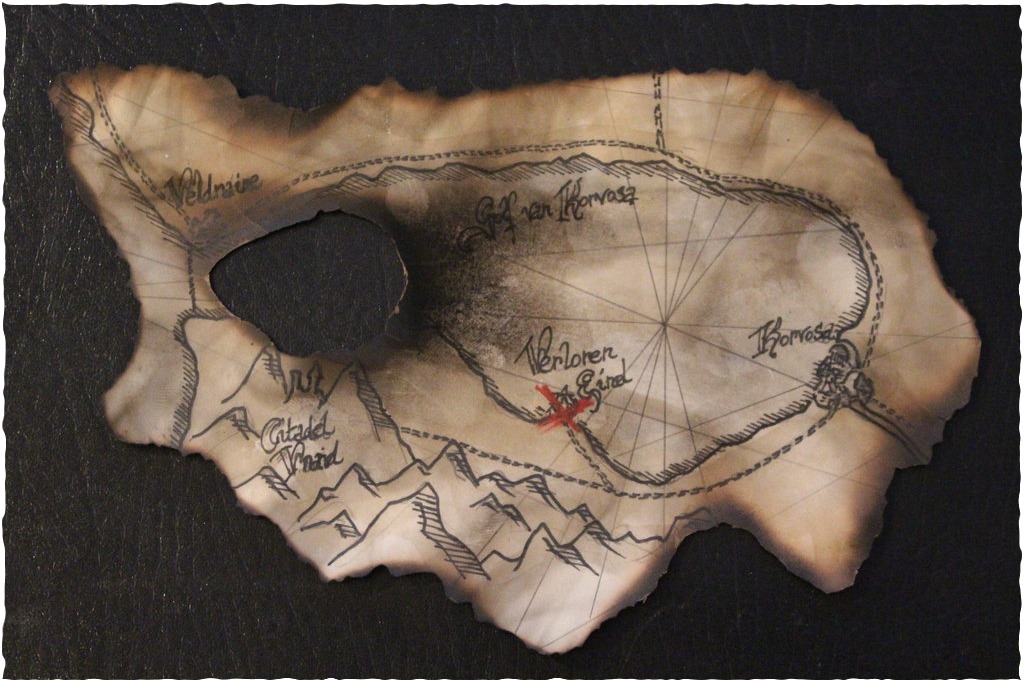 Veldraine
Golf van Korvosa
Verloren
Eind
Korvosa
Citadel
Vraid